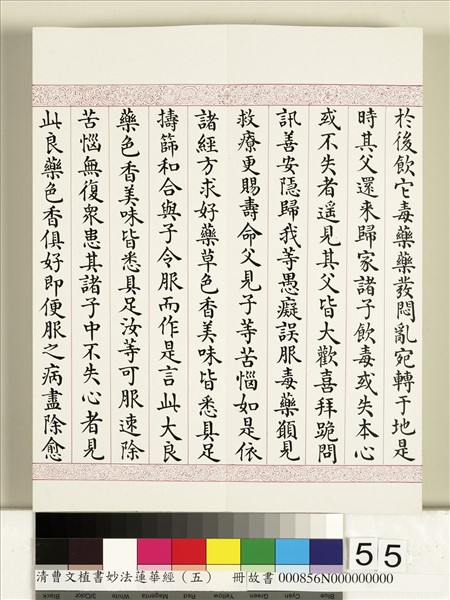 於後飲它毒藥藥發悶亂宛轉于地是
時其父還來歸家諸子飲毒或失本心
或不失者遙見其父皆大歡喜拜跪問
訊善安隱歸我等愚癡誤服毒藥願見
救療更賜壽命父見子等苦惱如是依
諸經方求好藥草色香美味皆悉具足
擣篩和合與子令服而作是言此大良
藥色香美味皆悉具足汝等可服速除
苦惱無復衆患其諸子中不失心者見
此良藥色香俱好即便服之病盡除愈
55
清曹文植書妙法蓮華經（五） 冊故書 000856N000000000
Black 3/Color White Magenta Red Yellow Green Cyan Blue